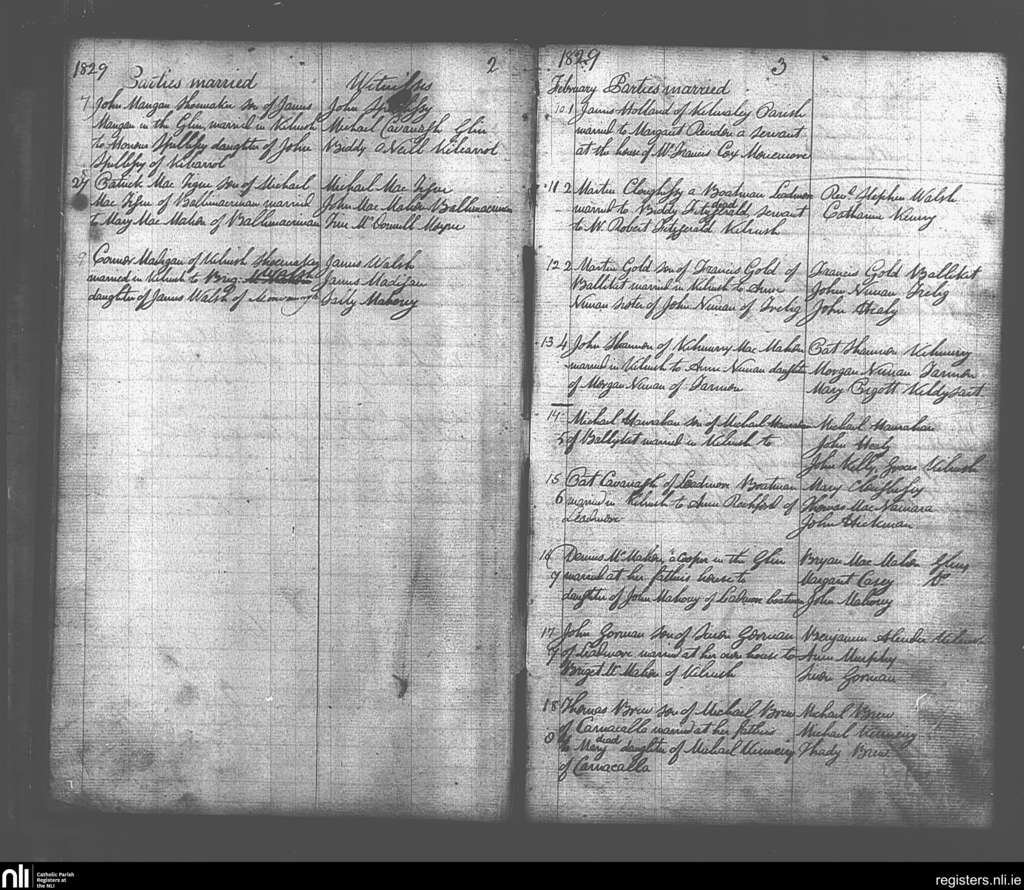 1829
2
Parties married Witnesses
7 John Mangan Shoemaker son of James John Spellissy
Mangan in the Glin, married in Kilrush Michael Cavanagh Glin
to Honour Spellissy daughter of John Biddy O Neill Kilcarrol
Spellissy of Kilcarrol
24 Patrick Mac Tigue son of Michael Michael Mac Tigue
Mac Tigue of Ballimacrinan married John Mac Mahon Ballimacrinan
to Mary Mac Mahon of Ballimacrinan
9 Connor Madigan of Kilrush Shoemaker James Walsh
married in Kilrush to James Madigan
daughter of James Walsh of Sally Mahony
1829
3
February Parties married
10 1 James Molland of Parish
married to Margaret a servant
at the house of Mr Francis Cox
11 2 Martin Cloughessy a Boatman Leadmore Revd Stephen Walsh
dead
married to Biddy Fitzgerald servant Catharine
to W. Robert Fitzgerald Kilrush
12 2 Martin Gold son of Francis Gold of Francis Gold Ballikit
Ballikit married in Kilrush to Anne John Ninan
Ninan sister of John Ninan of John Healy
13 4 John Shannon of Kilmurry Mac Mahon Pat Shannon Kilmurry
married in Kilrush to Anne Ninan daughter Morgan Ninan
of Morgan Ninan of Mary Pigott Kildysart
14 Michael Hanrahan son of Michael Hanrahan Michael Hanrahan
5 of Ballykit married in Kilrush to John
John Kelly, Kilrush
15 Pat Cavanagh of Leadmore Boatman Mary Cloughessy
6 married in Kilrush to Anne Rochford of Thomas Mac Namara
Leadmore John Hickman
16 Dennis Mc Mahon, a Cooper in the Glin Bryan Mac Mahon Glin
7 married at her fathers house to Margaret Casey Do
daughter of John Mahony of Leadmore boatman John Mahony
17 John Gorman son of Gorman Benjamin Kilrush
of Leadmore married at her own house to Anne Murphy
Briget Mc Mahon of Kilrush Gorman
18 Thomas Brew son of Michael Brew Michael Brew
of Carnacalla married at her fathers Michael
dead
8 to Mary daughter of Michael Thady Brew
of Carnacalla
nli Catholic Parish
Registers at
the NLI
registers.nli.ie